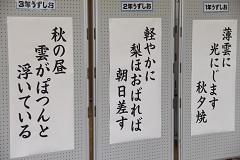 1年うずしお
薄雲に
光にじます
秋夕焼
2年うずしお
軽やかに
梨ほおばれば
朝日差す
3年うずしお
秋の昼
雲がぽつんと
浮いている